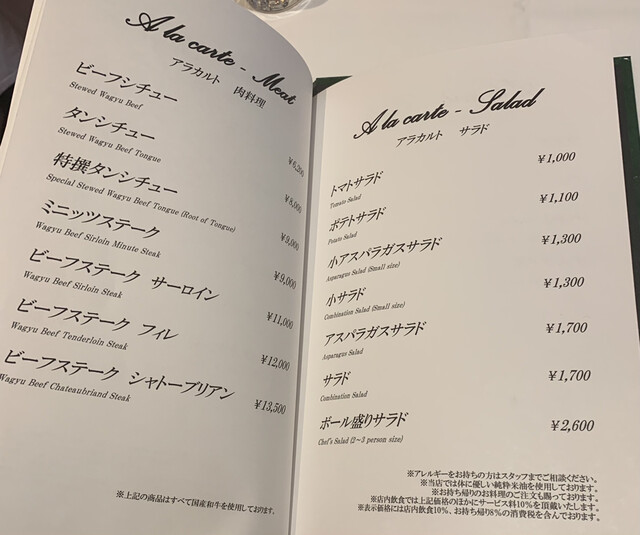 A la carte - Meat
アラカルト 肉料理
ビーフシチュー
Stewed Wagyu Beef
¥6,200
タンシチュー
Stewed Wagyu Beef Tongue
¥8,000
特撰タンシチュー
Special Stewed Wagyu Beef Tongue (Root of Tongue)
¥9,000
ミニッツステーク
Wagyu Beef Sirloin Minute Steak
¥9,000
ビーフステーク サーロイン
Wagyu Beef Sirloin Steak
¥11,000
ビーフステーク フィレ
Wagyu Beef Tenderloin Steak
¥12,000
ビーフステーク シャトーブリアン
Wagyu Beef Chateaubriand Steak
¥13,500
※上記の商品はすべて国産和牛を使用しております。
A la carte - Salad
アラカルト サラド
トマトサラド ¥1,000
Tomato Salad
ポテトサラド ¥1,100
Potato Salad
小アスパラガスサラド ¥1,300
Asparagus Salad (Small size)
小サラド ¥1,300
Combination Salad (Small size)
アスパラガスサラド ¥1,700
Asparagus Salad
サラド ¥1,700
Combination Salad
ボール盛りサラド ¥2,600
Chef's Salad (2～3 person size)
※アレルギーをお持ちの方はスタッフまでご相談ください。
※当店では体に優しい純粋米油を使用しております。
※お持ち帰りのお料理のご注文も賜っております。
※店内飲食では上記価格のほかにサービス料10％を頂戴いたします。
※表示価格には店内飲食10％、お持ち帰り8％の消費税を含んでおります。